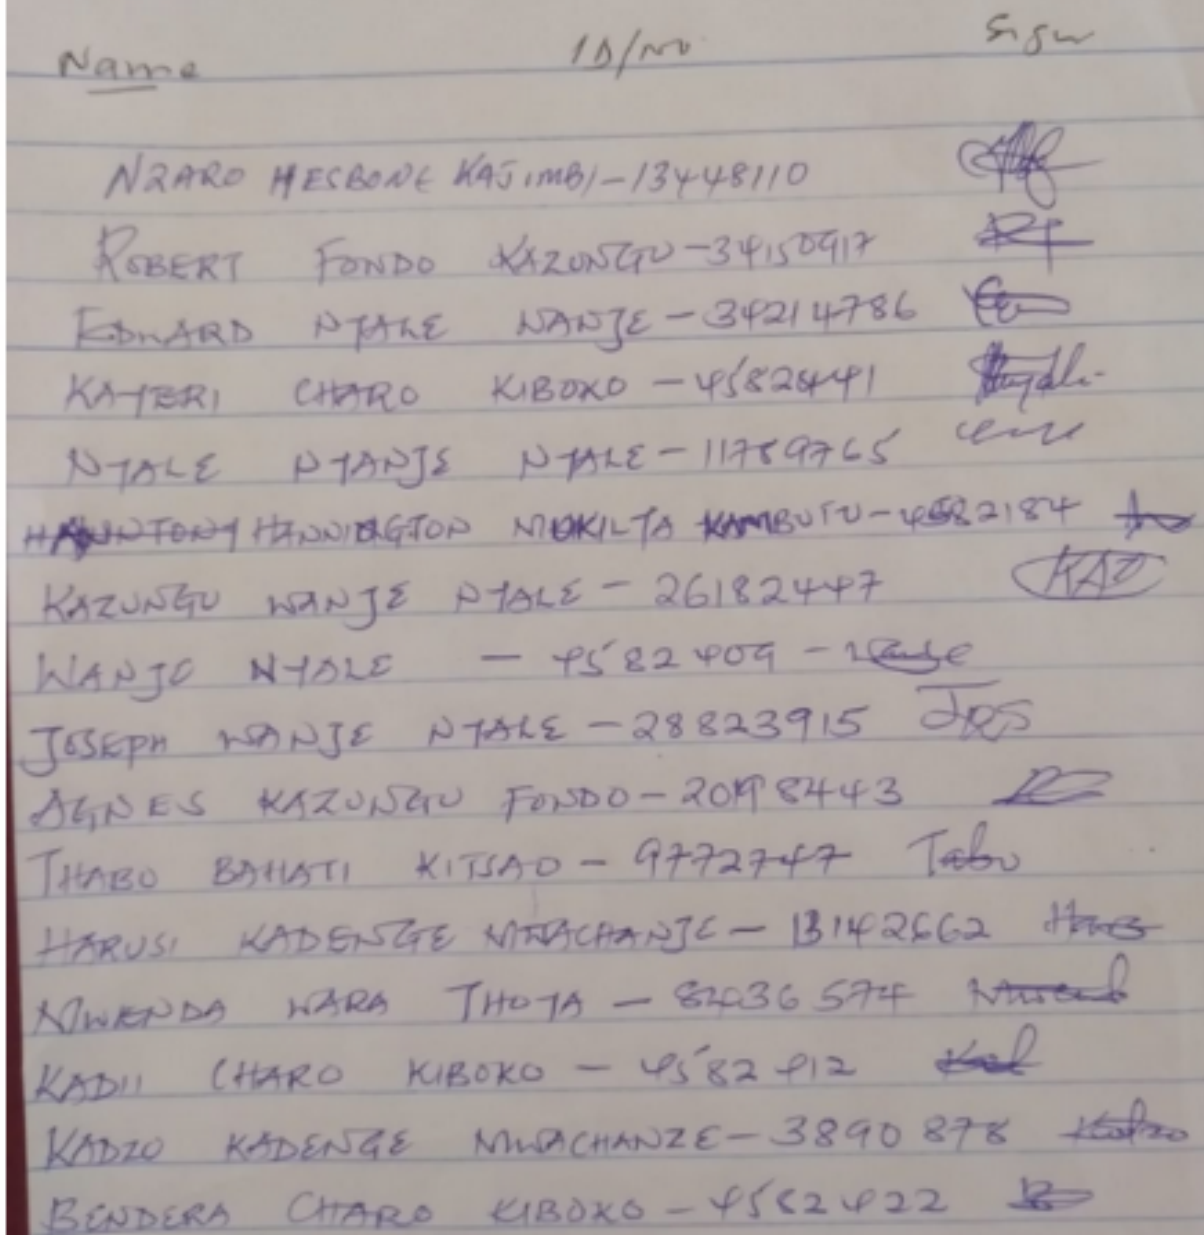 Name ID/No Sign
NZARO HESBONE KAJIMBI - 13448110
ROBERT FONDO KAZUNGU - 34150917
EDWARD NYALE WANJE - 34214786
KAYERI CHARO KIBOKO - 4582441
NYALE NYANJE NYALE - 11789765
HANNINGTON KAMBUTU - 4582184
KAZUNGU WANJE NYALE - 26182447 KAZ
WANJE NYALE - 4582409 - Wanje
JOSEPH WANJE NYALE - 28823915 JOS
AGNES KAZUNGU FONDO -
THABO BAHATI KITSAO - 9772747 Tabu
HARUSI KADENGE MWACHANJE - 13142662
MWENDA WARA THOYA -
KADII CHARO KIBOKO - 4582412
KADZO KADENGE MWACHANZE - 3890878 Kadzo
BENDERA CHARO KIBOKO - 4582422